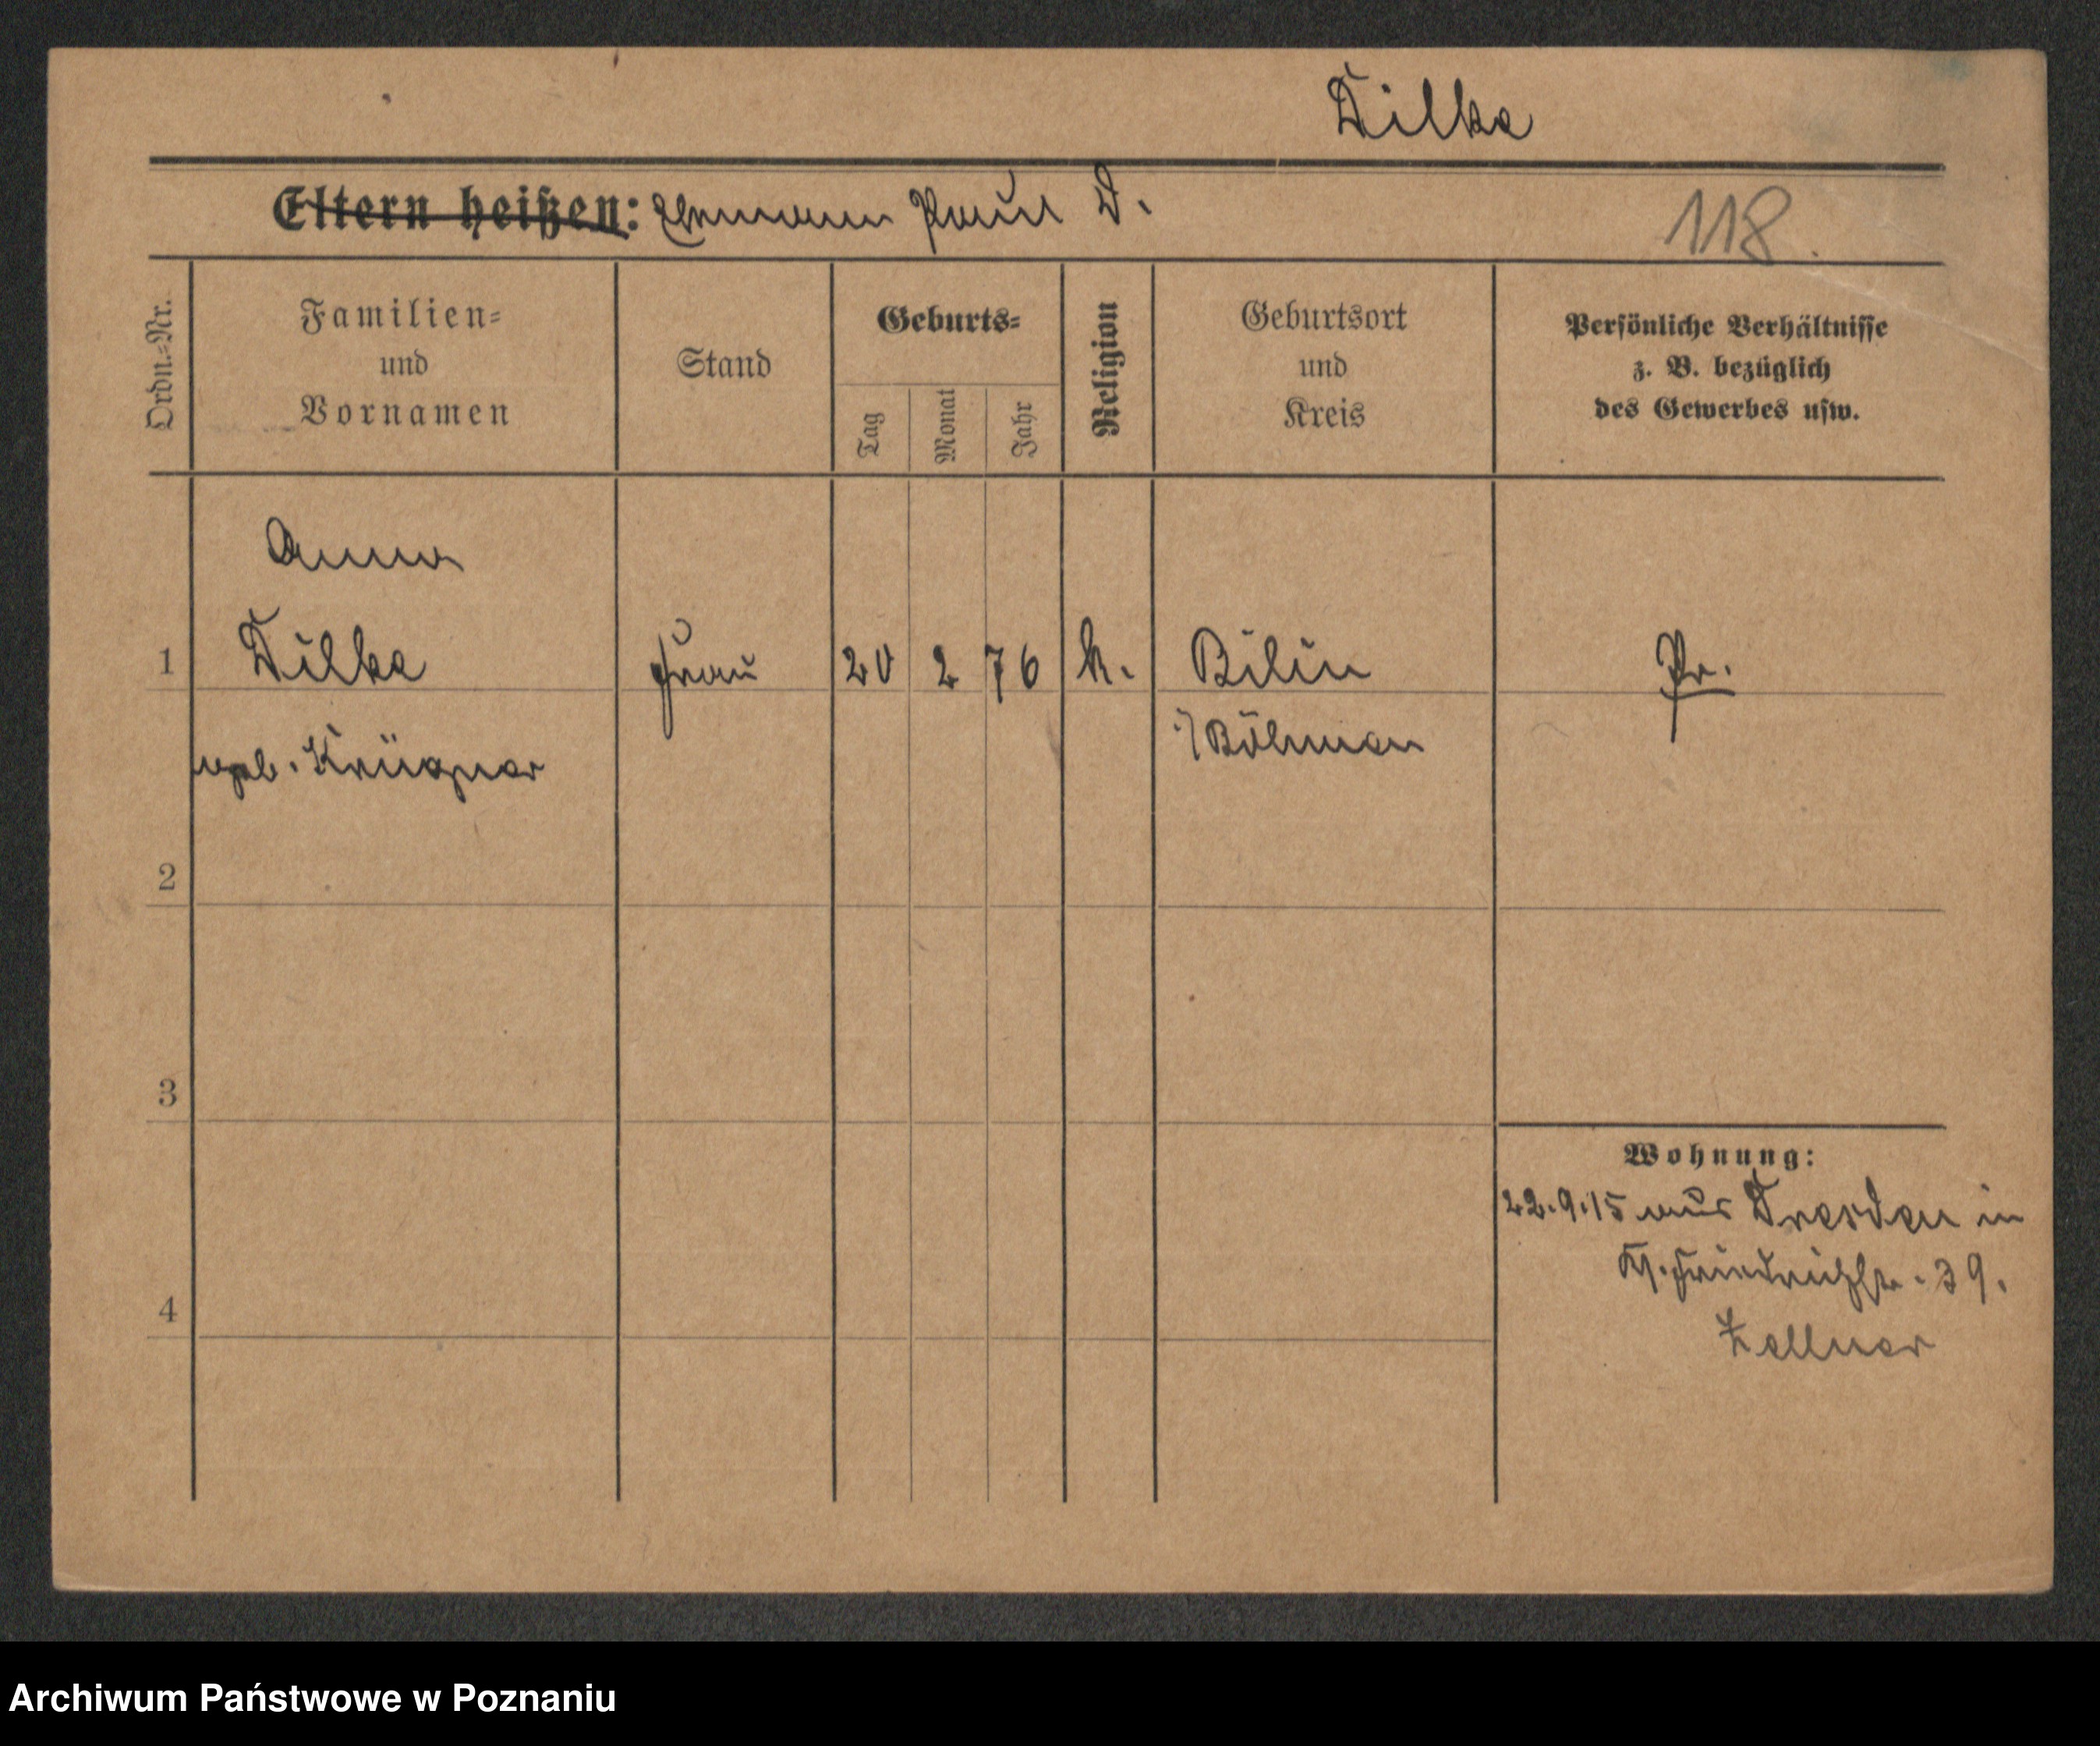 Dilke
Eltern heißen: Ehemann Paul D.
118.
Ordn.-Nr.
Familien-
und
Vornamen
Stand
Geburts-
Tag
Monat
Jahr
Religion
Geburtsort
und
Kreis
Persönliche Verhältnisse
z. B. bezüglich
des Gewerbes usw.
Anna
1 Dilke Frau 20 2 76 k. Bilin Pr.
geb. Krügner i/Böhmen
2
3
Wohnung:
22.9.15 aus Dresden in
Kl. Friedrichstr. 39.
4
Zellner
Archiwum Państwowe w Poznaniu